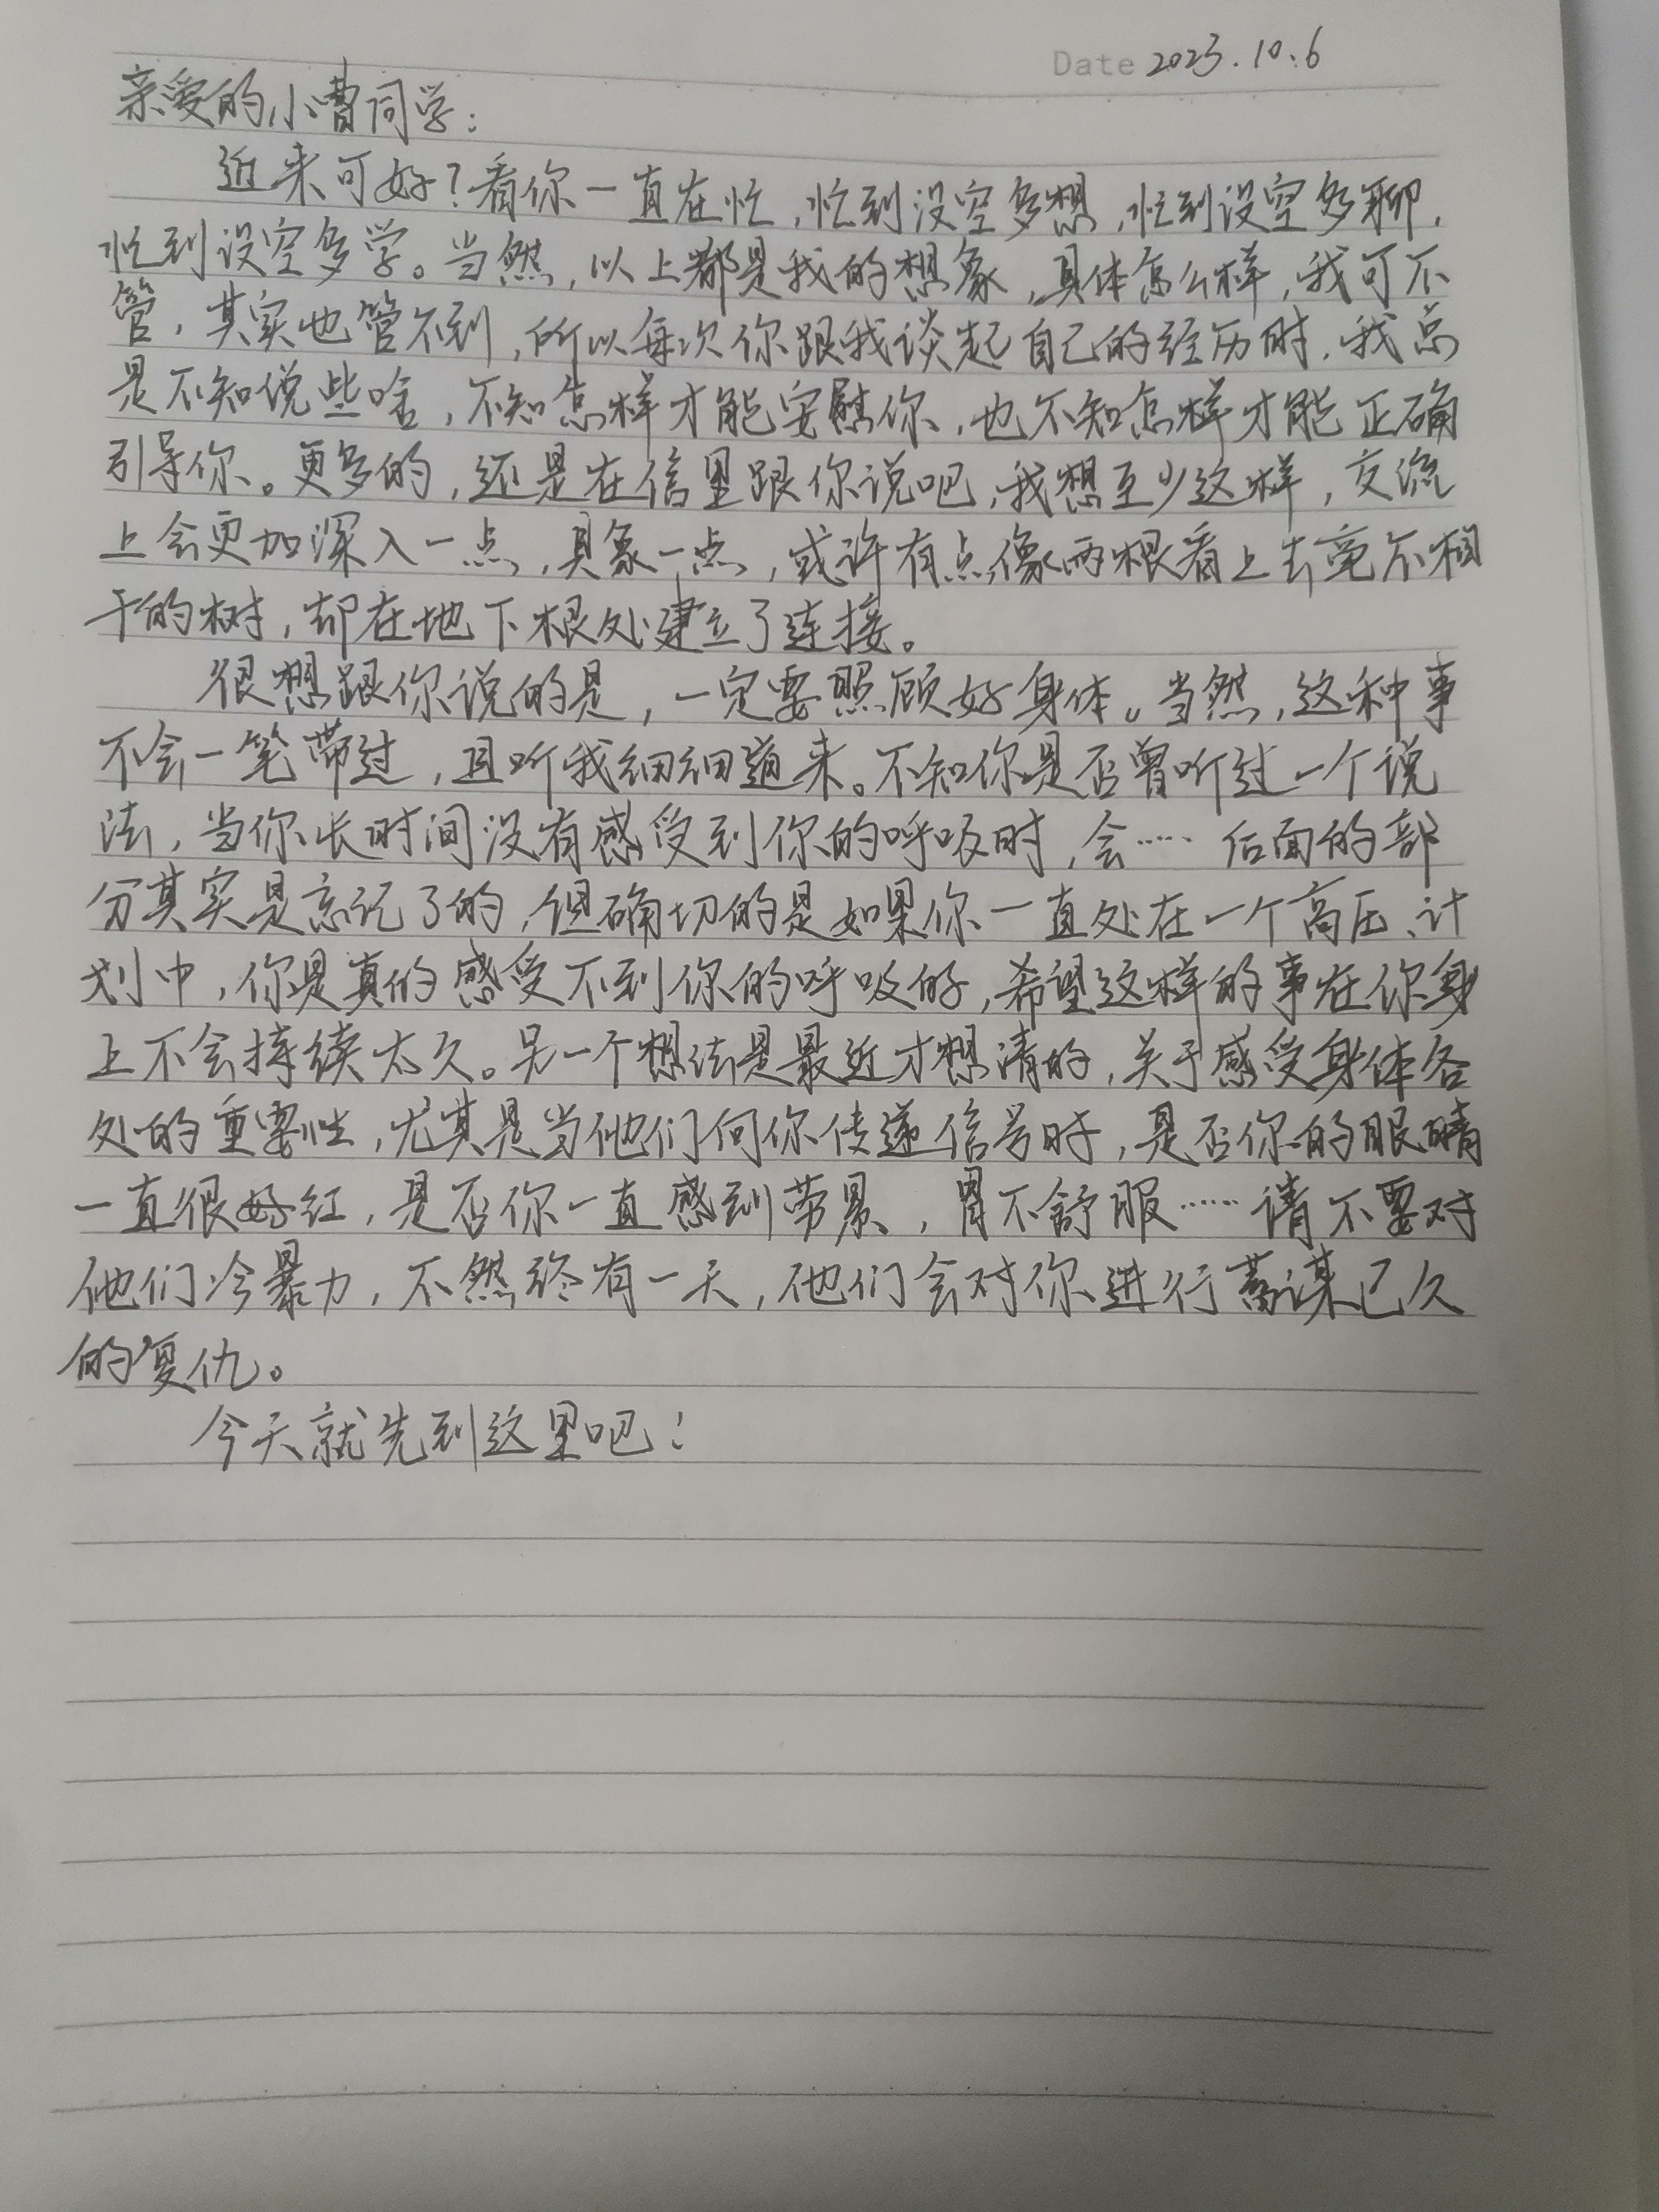 Date 2023.10.6
亲爱的小曹同学：
近来可好？看你一直在忙，忙到没空多想，忙到没空多聊，
忙到没空多学。当然，以上都是我的想象，具体怎么样，我可不
管，其实也管不到，所以每次你跟我谈起自己的经历时，我总
是不知说些啥，不知怎样才能安慰你，也不知怎样才能正确
引导你。更多的，还是在信里跟你说吧，我想至少这样，交流
上会更加深入一点，具象一点，或许有点像两根看上去毫不相
干的树，却在地下根处建立了连接。
很想跟你说的是，一定要照顾好身体。当然，这种事
不会一笔带过，且听我细细道来。不知你是否曾听过一个说
法，当你长时间没有感受到你的呼吸时，会…… 后面的部
分其实是忘记了的，但确切的是如果你一直处在一个高压、计
划中，你是真的感受不到你的呼吸的，希望这样的事在你身
上不会持续太久。另一个想法是最近才想清的，关于感受身体各
处的重要性，尤其是当他们向你传递信号时，是否你的眼睛
一直很红，是否你一直感到劳累，胃不舒服……请不要对
他们冷暴力，不然终有一天，他们会对你进行蓄谋已久
的复仇。
今天就先到这里吧！